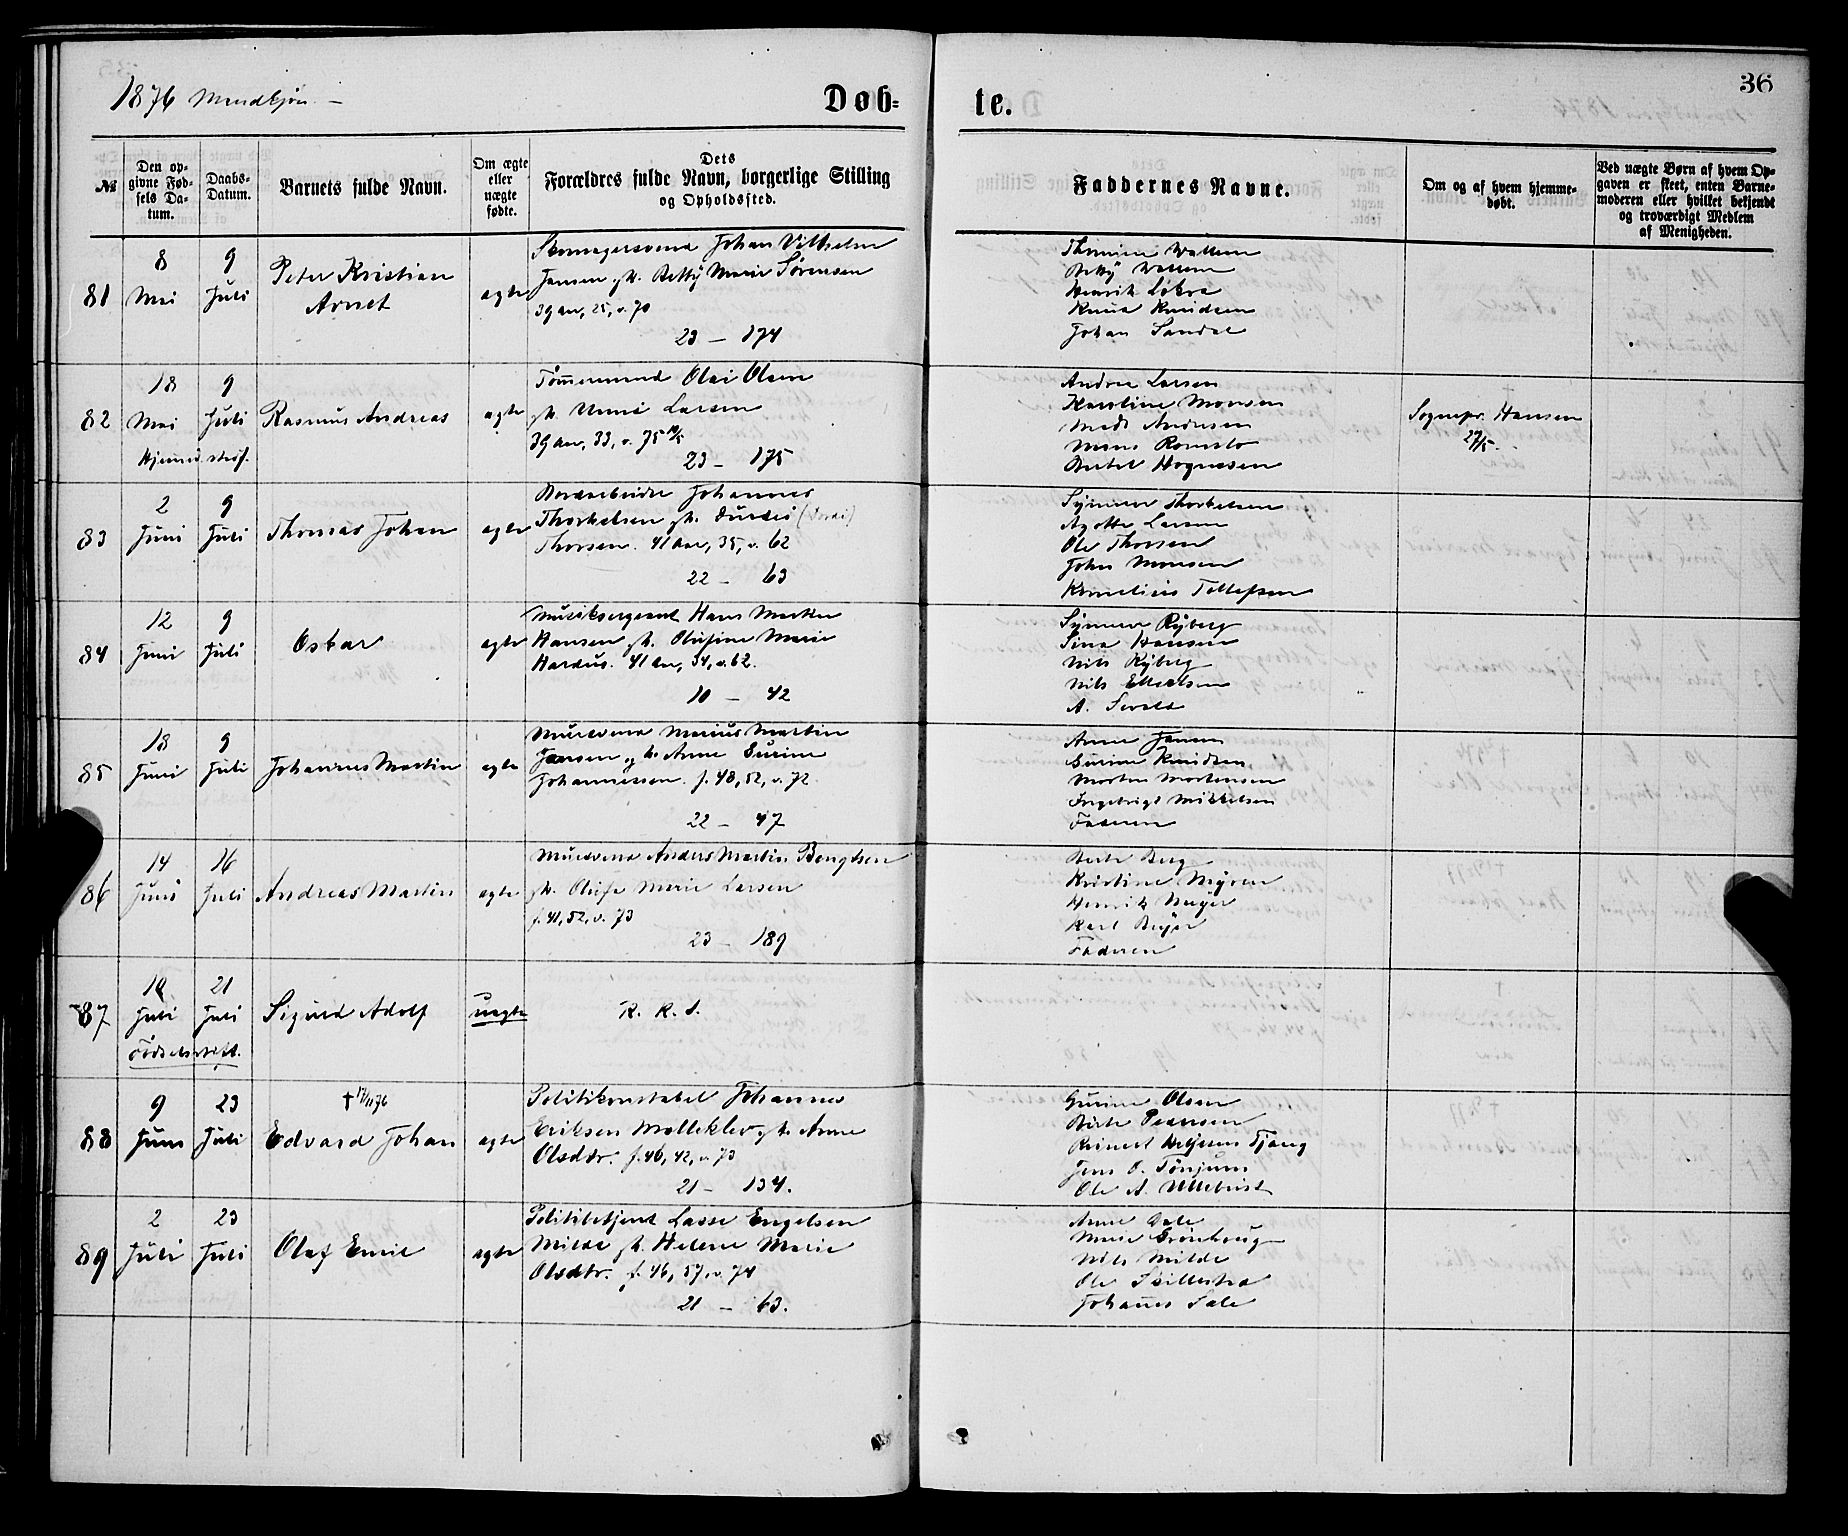 1876 Mandkjøn. —
Døb=
te.
36
№
Den op-
givne Fød-
sels Da-
tum.
Daabs-
Datum.
Barnets fulde Navn.
Om ægte
eller
uægte
fødte.
Dets
Forældres fulde Navn, borgerlige Stilling
og Opholdssted.
Faddernes Navne.
Om og af hvem hjemme-
døbt.
Ved uægte Børn af hvem Op-
gaven er skeet, enten Barne-
moderen eller hvilket bekjendt
og troværdigt Medlem
af Menigheden.
81
8
Mai
9
Juli
Peter Kristian
Arnet
ægte
Skomagersvend Johan Vilhelm
Jansen, gh. Betty Marie Sørensen
39 aar, 25, v. 70
23 — 174
Betty Wallem
Henrik
Knud Knudsen
Johan Sandal
82
18
Mai
Hjemmed. skrøf.
9
Juli
Rasmus Andreas
ægte
Tømmermand Olai Olsen
gh. Larsen
39 aar, 33, v. 75
23 — 175
Andrea Larsen
Karoline Monsen
Mads Andersen
Mons Romslo
Bertel Hognesen
Sognepr. Hansen
27/5
83
2
Juni
9
Juli
Thomas Johan
ægte
Bordarbeider Johannes
Thorkelsen, gh. Durdei (Dordei)
Thorsen. 41 aar, 35, v. 62
22 — 63
Synneve Thorkelsen
Agathe Larsen
Ole Thorsen
John Monsen
Kornelius Tollefsen
84
12
Juni
9
Juli
Oskar
ægte
Musiksergeant Hans Martin
Hansen, gh. Olufine Marie
Hardus. 41 aar, 34, v. 62.
10 — 42
Synneve Ryberg
Sina Hansen
Nils Ryberg
Nils Ellertsen
85
18
Juni
9
Juli
Johannes Martin
ægte
Mursvend Marius Martin
Jansen, gh. Anne Gurine
Johannessen. f. 48, 52, v. 72.
22 — 47
Anna Jansen
Gurine Knudsen
Morten Mortensen
Ingebrigt Mikkelsen
Faderen
86
14
Juni
16
Juli
Andreas Martin
ægte
Mursvend Anders Martin Bengtsen
gh. Olufa Marie Larsen
f. 41, 52, v. 73
23 — 189
Berte Berg
Kristine Myren
Henrik Meyer
Karl Beyer
Faderen
87
10
Juli
Fødselsstift.
21
Juli
Sigurd Adolf
uægte
R. R. S.
88
9
Juni
23
Juli
† 17/11 76
Edvard Johan
ægte
Politikonstabel Johannes
Eriksen Mølleklev, gh. Anne
Olsdtr. f. 46, 42, v. 73
21 — 134.
Gurine Olsen
Birte Pedersen
Reinert Helgesen Tjang
Jens O. Tønjum
Ole A. Ulletvist
89
2
Juli
23
Juli
Olaf Emil
ægte
Politibetjent Lasse Engelsen
Milde, gh. Helene Marie
Olsdtr. f. 46, 57, v. 74
21 — 63.
Anne Dale
Marie Grønhoug
Nils Milde
Ole
Johannes Dale